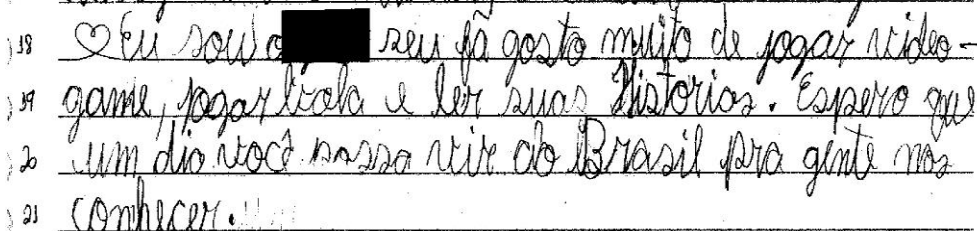 18 Eu sou o seu fã gosto muito de jogar video-
19 game, jogar bola e ler suas Histórias. Espero que
20 um dia você possa vir ao Brasil pra gente nos
21 conhecer.